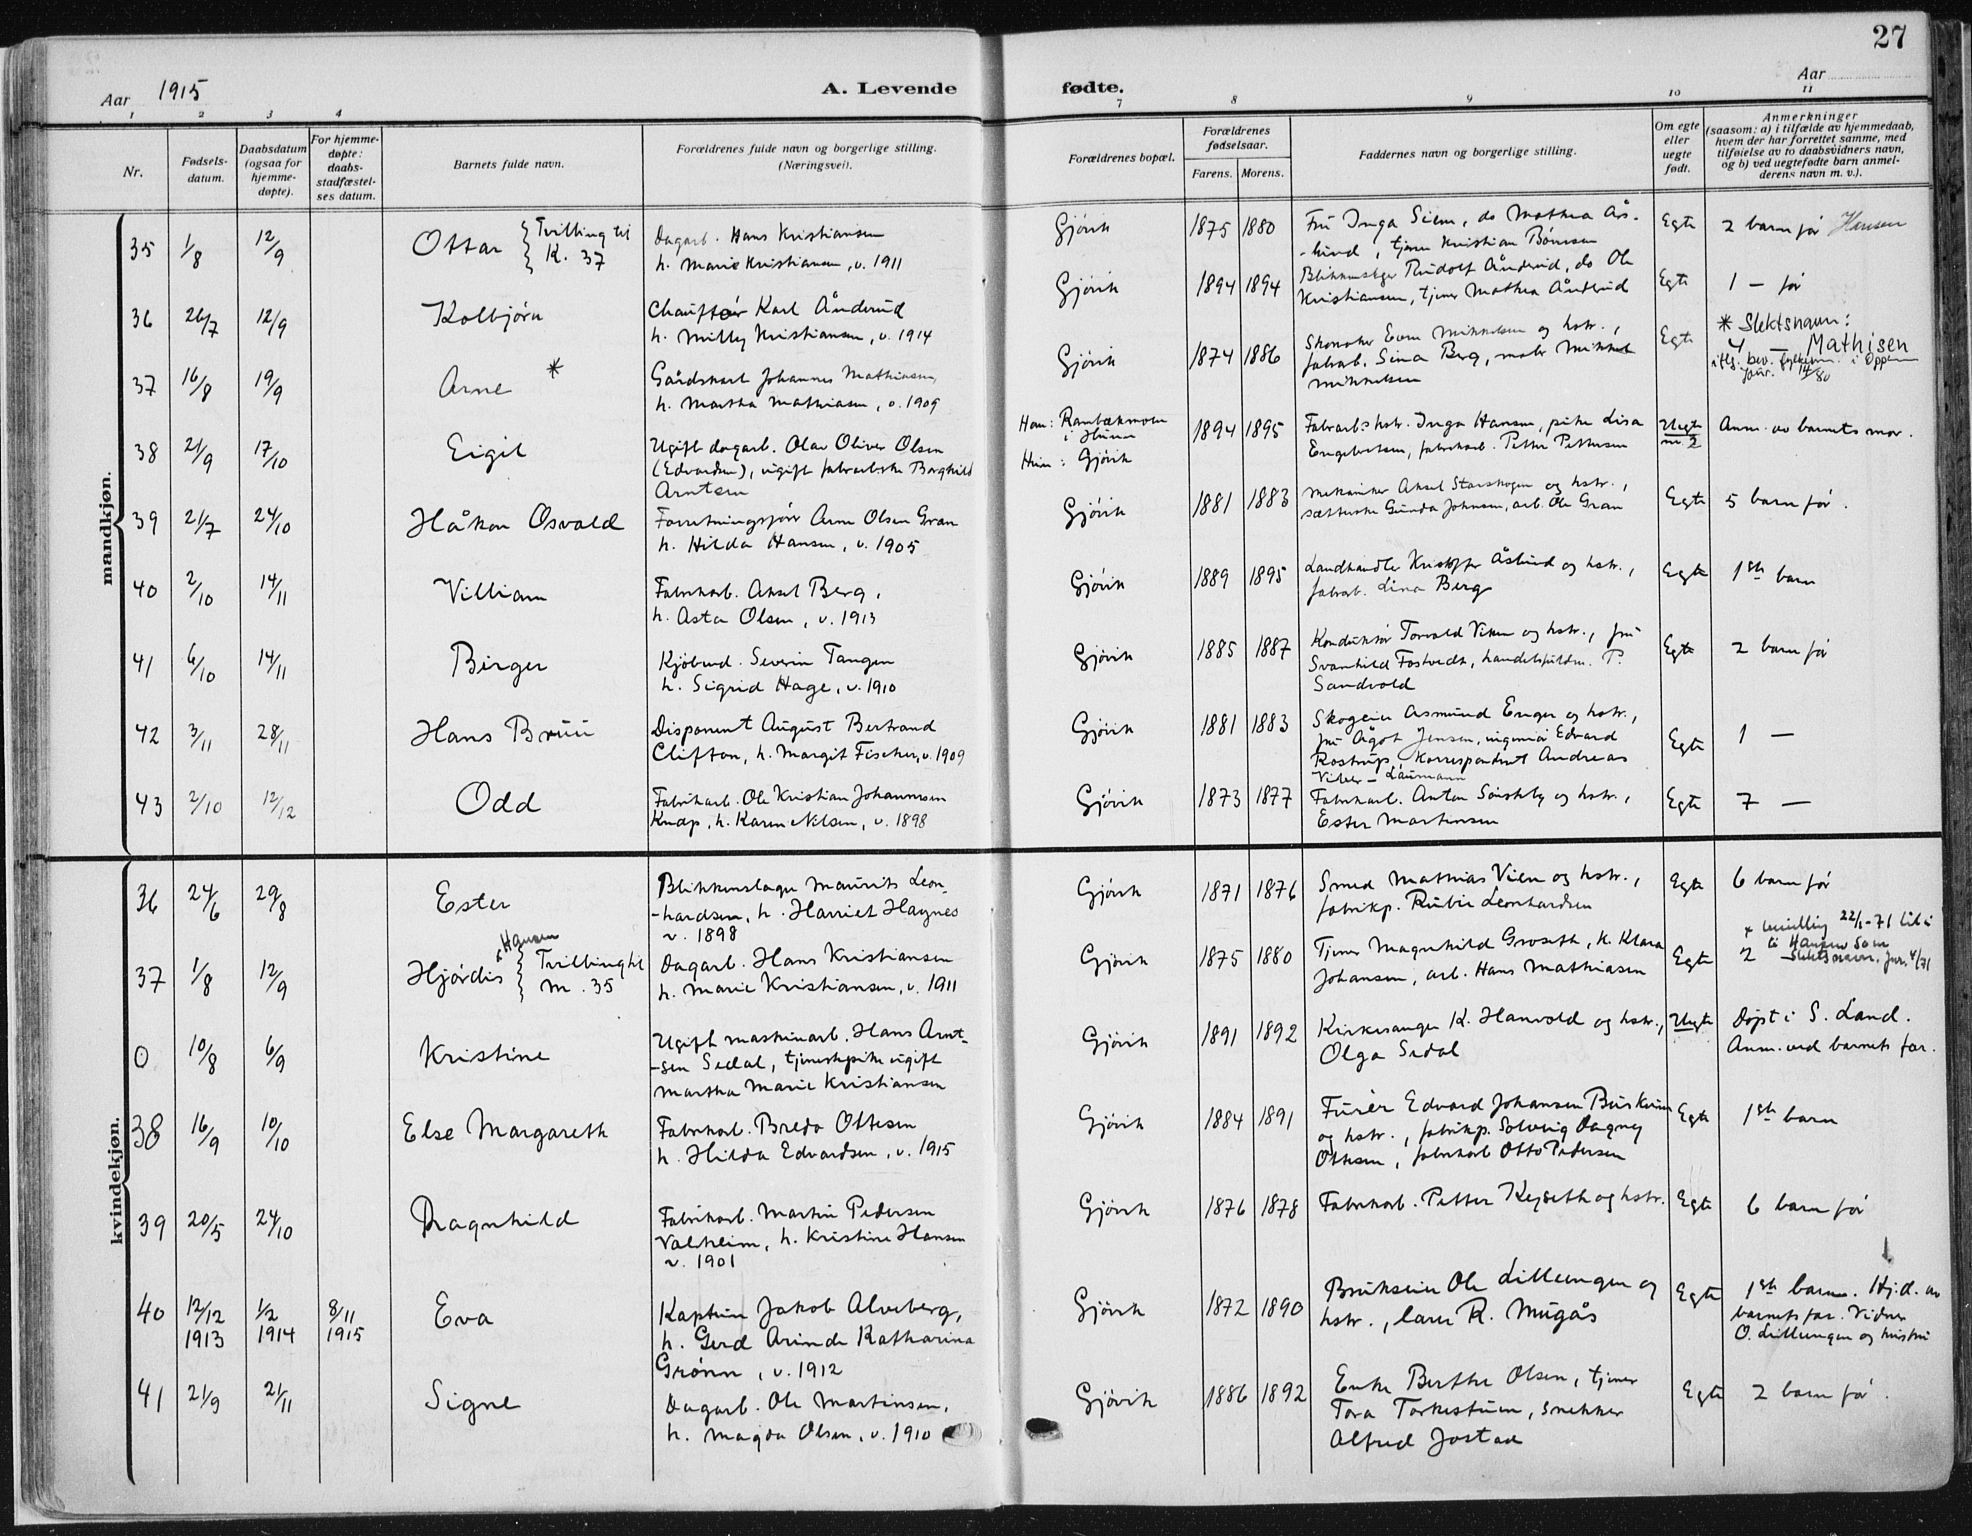 27
Aar 1915
A. Levende
fødte.
Aar
1 2 3 4 7 8 9 10 11
Nr.
Fødsels-
datum.
Daabsdatum
(ogsaa for
hjemme-
døpte).
For hjemme-
døpte:
daabs-
stadfæstel-
ses datum.
Barnets fulde navn.
Forældrenes fulde navn og borgerlige stilling.
(Næringsvei).
Forældrenes bopæl.
Forældrenes
fødselsaar.
Farens. Morens.
Faddernes navn og borgerlige stilling.
Om egte
eller
uegte
født.
Anmerkninger
(saasom: a) i tilfælde av hjemmedaab,
hvem der har forrettet samme, med
tilføielse av to daabsvidners navn,
og b) ved uegtefødte barn anmel-
derens navn m. v.).
mandkjøn.
35 1/8 12/9 Ottar Tvilling til
K. 37
Dagarb. Hans Kristiansen
h. Marie Kristiansen, v. 1911
Gjövik 1875 1880
Fru Inga Siem, do Mathea Ås-
-lund, tjener Kristian
Egte 2 barn för Hansen
36 26/7 12/9 Kolbjörn
Chaufför Karl Ånderud
h. Milly Kristiansen, v. 1914
Gjövik 1894 1894
Rudolf Ånderud, do Ole
Kristiansen, tjener Mathea Ånderud
Egte 1 — för
37 16/8 19/9 Arne *
Gårdskarl Johannes Mathiasen,
h. Martha Mathiasen, v. 1909
Gjövik 1874 1886
Skomaker Even Mikkelsen og hstr.,
fabarb. Sina Berg, maler Mikkel
Mikkelsen
Egte * Slektsnavn:
4 — Mathisen
iflg. bev. i Oppl
jour. 14/80
38 21/9 17/10 Eigil
Ugift dagarb. Olav Oliver Olsen
(Edvardsen), ugift fabrarbske Borghild
Arntsen
Han:
Hun: Gjövik
1894 1895
Inga Hansen, pike Lisa
Engebretsen, fabrikarb. Petter Pettersen
Uegte
nr. 2
Anm. av barnets mor.
39 21/7 24/10 Håkon Osvald
Forretningsför Arne Olsen Gran
h. Hilda Hansen, v. 1905
Gjövik 1881 1883
Mekaniker Aksel Starskogen og hstr.,
Gunda Johnsen, arb. Ole Gran
Egte 5 barn för.
40 2/10 14/11 Villiam
Fabrikarb. Aksel Berg,
h. Asta Olsen, v. 1913
Gjövik 1889 1895
Landhandler Kristoffer Åslund og hstr.,
fabarb. Lina Berg
Egte 1ste barn
41 6/10 14/11 Birger
Kjöbmd. Severin Tangen
h. Sigrid Hage, v. 1910
Gjövik 1885 1887
Konduktör Torvald Viken og hstr., fru
Svanhild Fostvedt, handelsfuldm. P.
Sandvold
Egte 2 barn för
42 3/11 28/11 Hans Bruu
Disponent August Bertrand
Clifton, h. Margit Fischer, v. 1909
Gjövik 1881 1883
Skogeier Asmund Enger og hstr.,
fru Ågot Jensen, ingeniör Edvard
Rostrup, korrespondent Andreas
Viker-Laumann
Egte 1 —
43 2/10 12/12 Odd
Fabrikarb. Ole Kristian Johannesen
Knap, h. Karen Nilsen, v. 1898
Gjövik 1873 1877
Fabrikarb. Anton og hstr.,
Ester Martinsen
Egte 7 —
kvindekjøn.
36 24/6 29/8 Ester
Blikkenslager Maurits Leon-
-hardsen, h. Harriet Haynes
v. 1898
Gjövik 1871 1876
Smed Mathias Vien og hstr.,
fabrikp. Rubie Leonhardsen
Egte 6 barn för
37 1/8 12/9 Hjördis Hansen Tvilling til
M. 35
Dagarb. Hans Kristiansen
h. Marie Kristiansen, v. 1911
Gjövik 1875 1880
Tjener Magnhild Groseth, h. Klara
Johansen, arb. Hans Mathiasen
Egte 2 —
22/1-71
Hansen som
slektsnavn. jnr. 4/71
0 10/8 6/9 Kristine
Ugift maskinarb. Hans Arnt-
-sen Sedal, tjenestepike ugift
Martha Marie Kristiansen
Gjövik 1891 1892
Kirkesanger K. Hanvold og hstr.,
Olga Sedal
Uegte Döpt i S. Land.
Anm. ved barnets far.
38 16/9 10/10 Else Margareth
Fabrikarb. Breda Ottesen
h. Hilda Edvardsen, v. 1915
Gjövik 1884 1891
Furer Edvard Johansen
og hstr., fabrikp. Solveig Dagny
Ottesen, fabrikarb Otto Pedersen
Egte 1ste barn
39 20/5 24/10 Ragnhild
Fabrikarb. Martin Pedersen
Valheim, h. Kristine Hansen
v. 1901
Gjövik 1876 1878
Fabrikarb. Petter Kyseth og hstr.
Egte 6 barn för
40 12/12 1913 1/2 1914 8/11 1915 Eva
Kaptein Jakob Alveberg,
h. Gerd Arinda Katharina
Grönn, v. 1912
Gjövik 1872 1890
Brukseier Ole Lilleengen og
hstr., lærer R. Mugås
Egte 1ste barn. Hj.d. av
barnets far. Vidner
O. Lillleengen og hustru
41 21/9 21/11 Signe
Dagarb. Ole Martinsen,
h. Magda Olsen, v. 1910
Gjövik 1886 1892
Enke Berthe Olsen, tjener
Tora Torkestuen, snekker
Alfred Jostad
Egte 2 barn för.